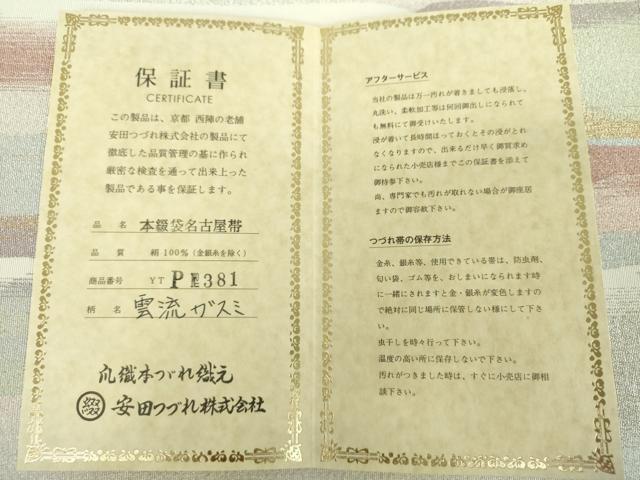 保証書
CERTIFICATE
この製品は、京都 西陣の老舗
安田つづれ株式会社の製品にて
徹底した品質管理の基に作られ
厳密な検査を通って出来上った
製品である事を保証します。
品 名 本綴袋名古屋帯
品 質 絹100%(金銀糸を除く)
商品番号 YT P 381
柄 名 雲流ガスミ
爪織本つづれ織元
安田つづれ株式会社
アフターサービス
当社の製品は万一汚れが着きましても浸落し、
丸洗い、柔軟加工等は何回御出しになられて
も無料にて御受けいたします。
浸が着いて長時間ほっておくとその浸がとれ
なくなりますので、出来るだけ早く御買求め
になられた小売店様までこの保証書を添えて
御持参下さい。
尚、専門家でも汚れが取れない場合が御座居
ますので御容赦下さい。
つづれ帯の保存方法
金糸、銀糸等、使用できている帯は、防虫剤、
匂い袋、ゴム等を、おしまいになられます時
に一緒にされますと金・銀糸が変色しますの
で絶対に同じ場所に保管しない様にして下さ
い。
虫干しを時々行って下さい。
温度の高い所に保存しないで下さい。
汚れがつきました時は、すぐに小売店に御相
談下さい。